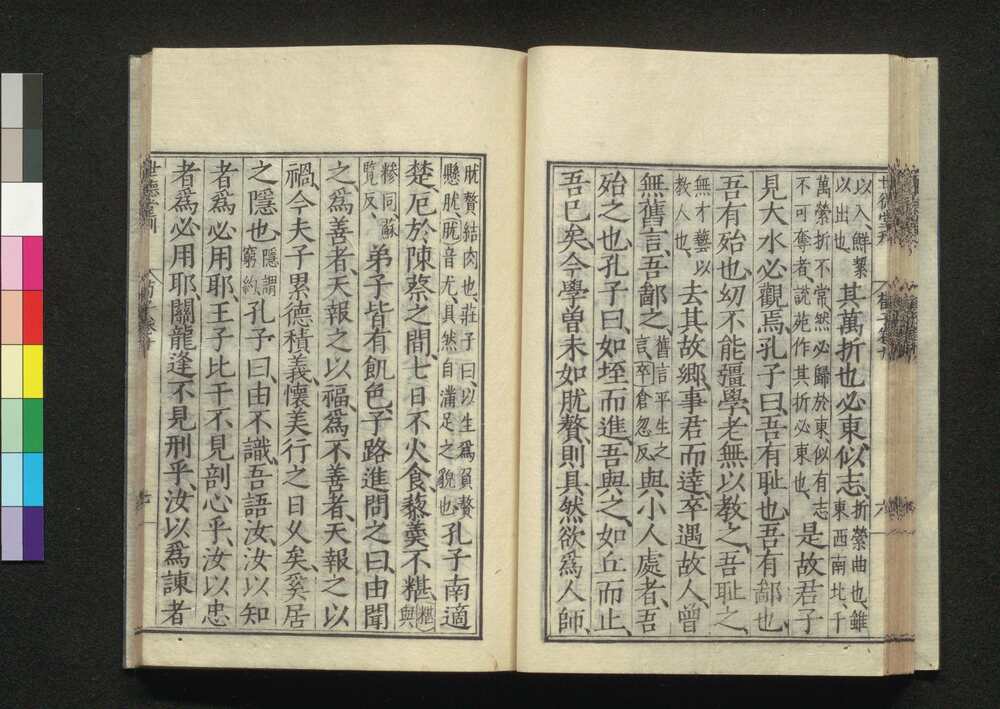 以入鮮絜以出也其萬折也必東、似志、折縈曲也、雖東西南北、千
萬縈折不常然必歸於東、似有志不可奪者、說苑作其折必東也、是故君子
見大水必觀焉、孔子曰、吾有恥也、吾有鄙也、
吾有殆也、幼不能彊學、老無以教之、吾恥之、
無才藝以教人也、去其故鄉、事君而達、卒遇故人、曾
無舊言、吾鄙之、舊言平生之言、卒倉忽反、與小人處者、吾
殆之也、孔子曰、如垤而進、吾與之、如丘而止、
吾已矣、今學曾未如肬贅、則具然欲爲人師、
肬贅結肉也、莊子曰、以生爲負贅懸肬、肬音尤、具然自滿足之貌也、孔子南適
楚、厄於陳蔡之間、七日不火食、藜羹不糂、糂與
糝同、蘇覽反、弟子皆有飢色、子路進問之曰、由聞
之、爲善者、天報之以福、爲不善者、天報之以
禍、今夫子累德積義、懷美行之日久矣、奚居
之隱也、隱謂窮約、孔子曰、由不識、吾語汝、汝以知
者爲必用耶、王子比干不見剖心乎、汝以忠
者爲必用耶、關龍逢不見刑乎、汝以爲諫者
世德堂刊